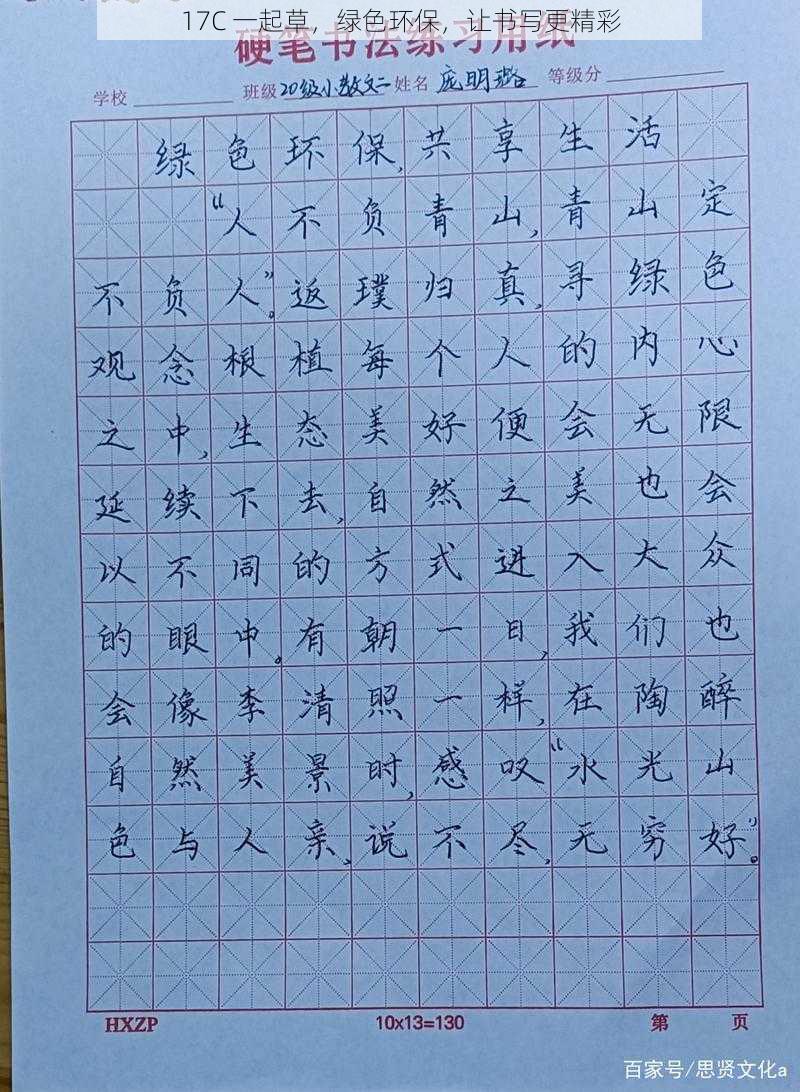 17C 一起草，绿色环保，让书写更精彩
硬笔书法练习用纸
学校 班级 20级小教文二 姓名 庞明璐 等级分
绿色环保,共享生活
“人不负青山,青山定
不负人”。返璞归真,寻绿色
观念根植每个人的内心
之中,生态美好便会无限
延续下去,自然之美也会
以不同的方式进入大众
的眼中。有朝一日,我们也
会像李清照一样,在陶醉
自然美景时,感叹“水光山
色与人亲、说不尽,无穷好”。
HXZP 10x13=130 第 页
百家号/思贤文化a